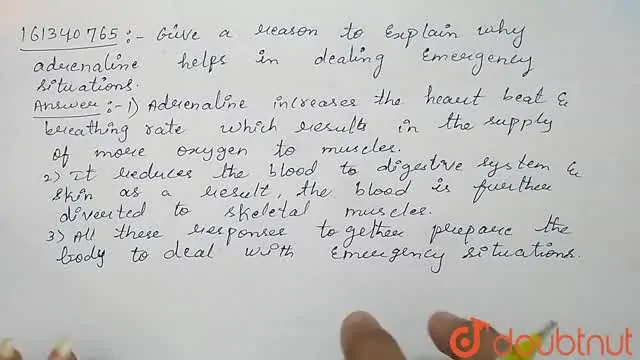 161340765 :- Give a reason to Explain why
adrenaline helps in dealing Emergency
situations.
Answer :- 1) Adrenaline increases the heart beat &
breathing rate which results in the supply
of more oxygen to muscles.
2) It reduces the blood to digestive system &
skin as a result, the blood is further
diverted to skeletal muscles.
3) All these responses together prepare the
body to deal with Emergency situations.
doubtnut